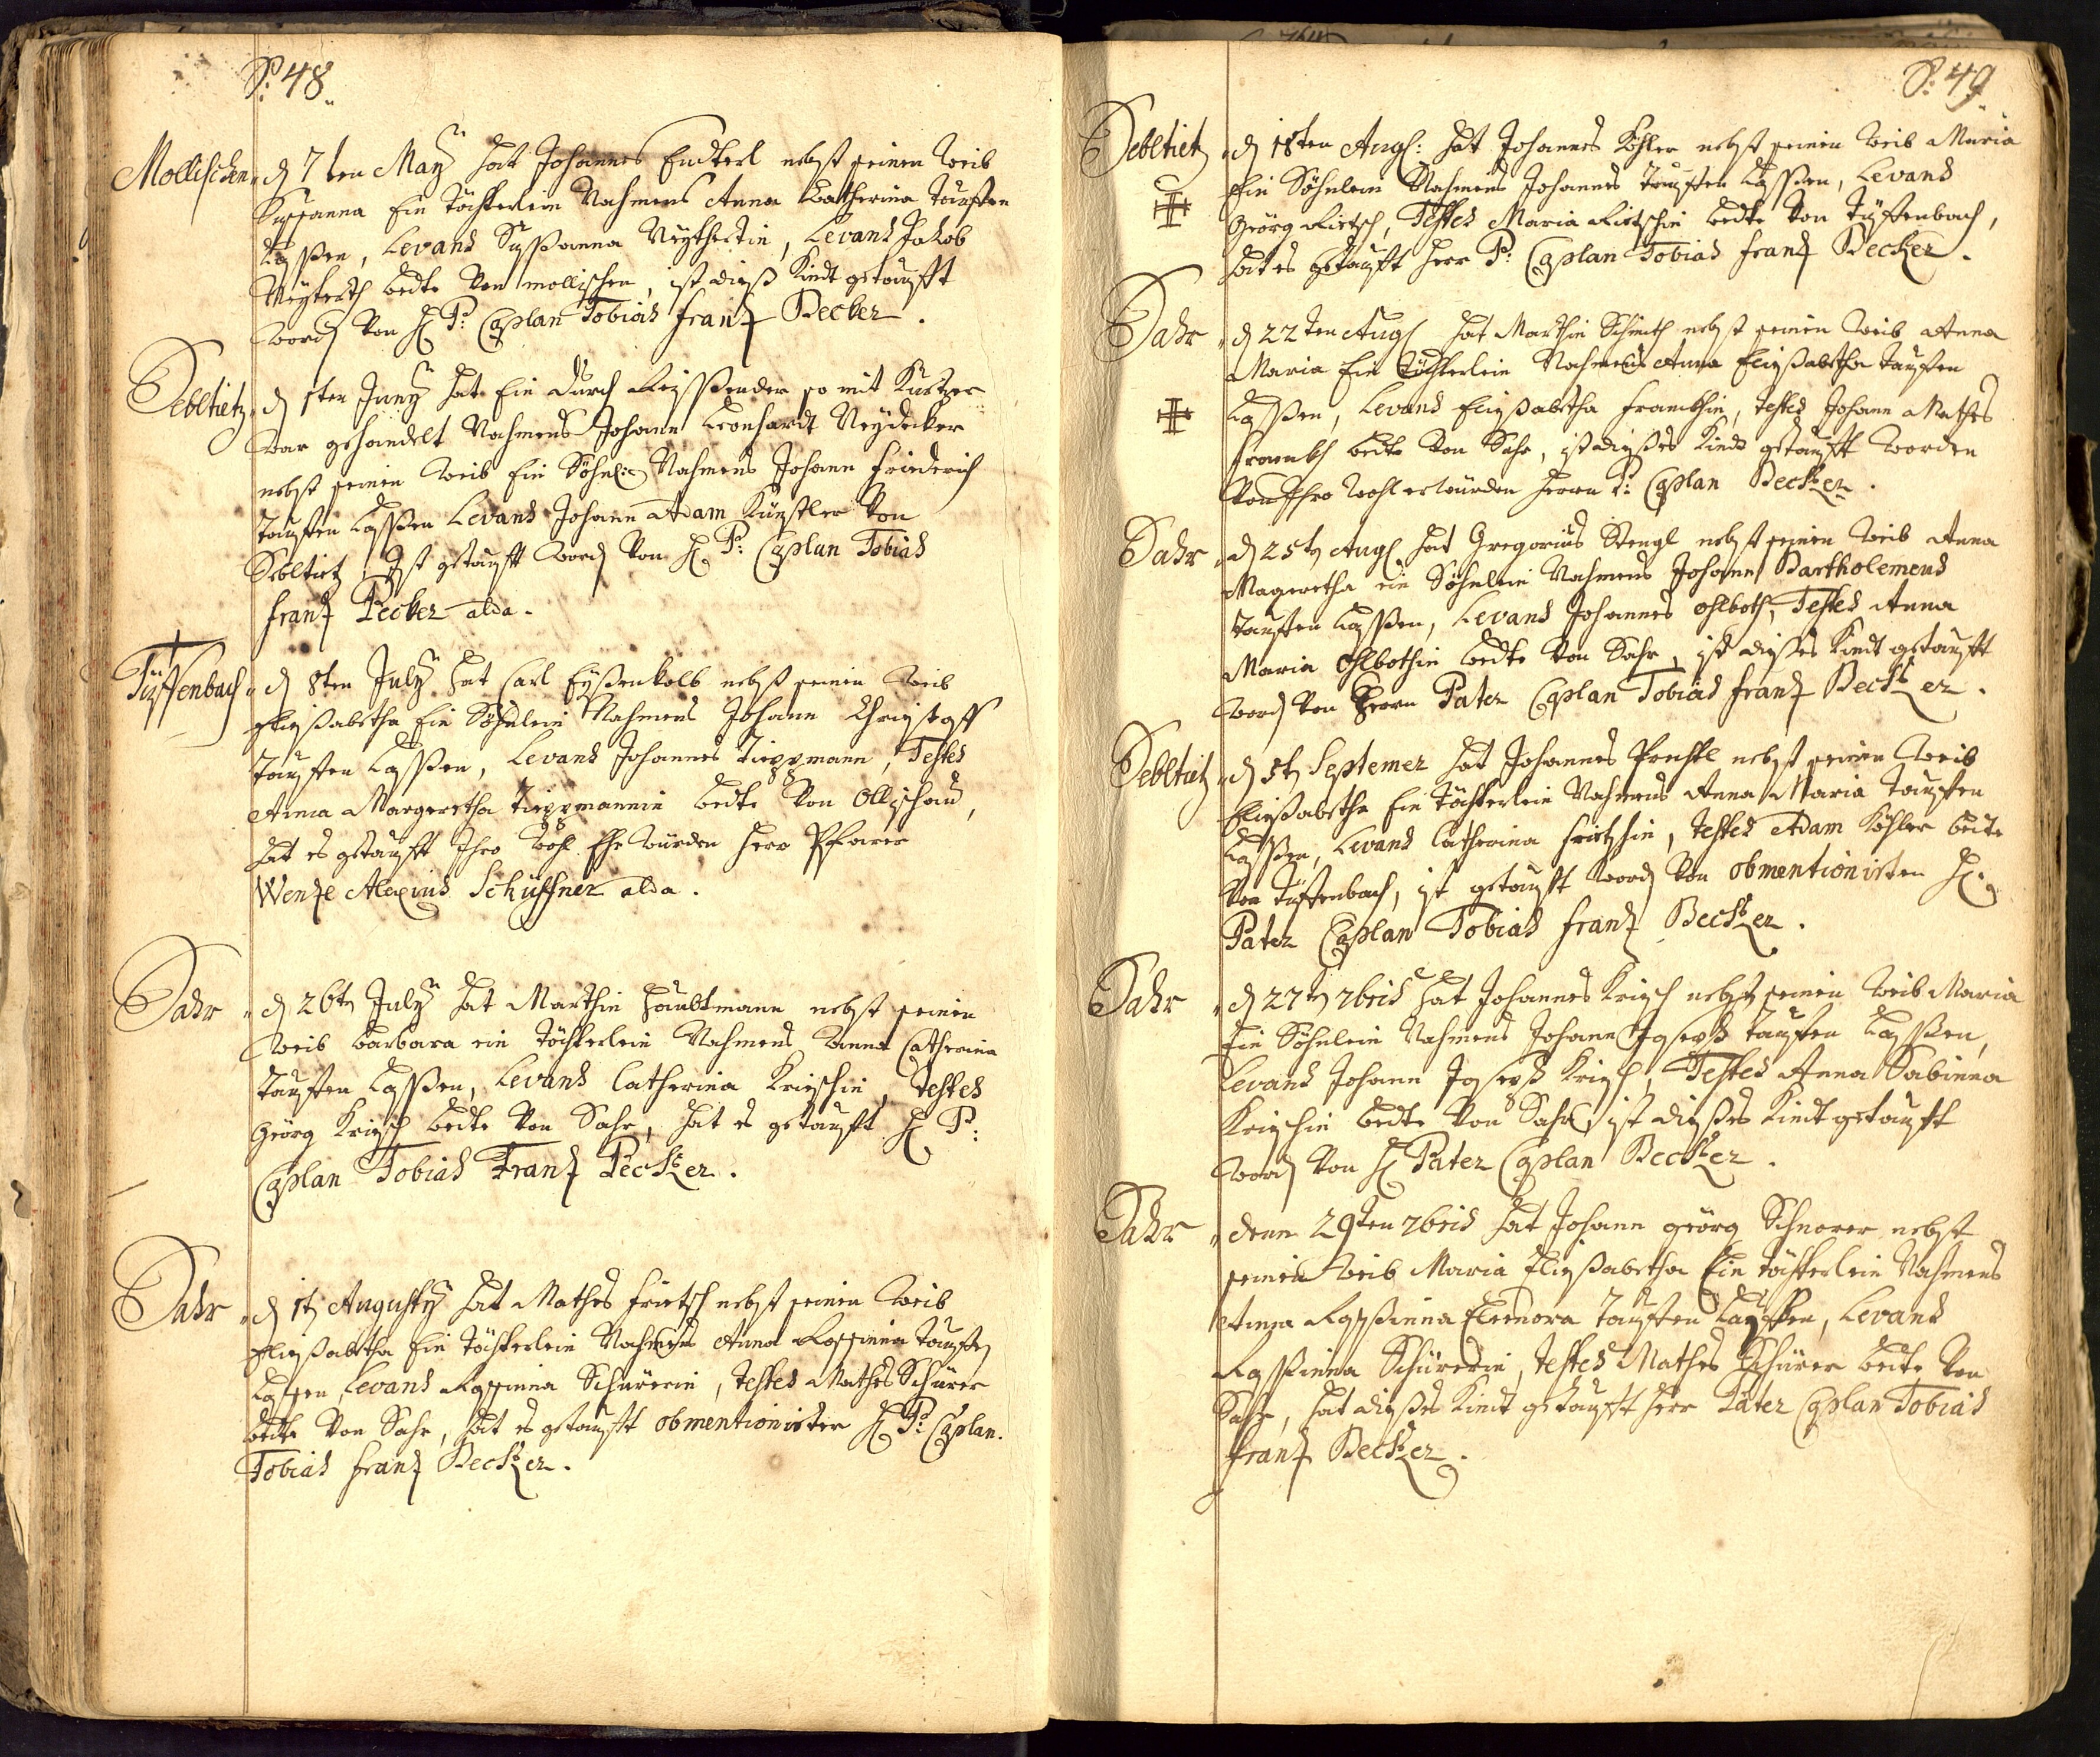 P: 48.
Mollischen
d 7ten May hat Johannes Endterl nebst seinen Weib
Sussanna Ein Töchterlein Nahmens Anna Catherina Tauffen
Lassen, Levans Sußanna Neythertin, Levans Jakob
Neyterth beite Von mollischen, ist dieß Kindt getaufft
Word Von H P: Caplan Tobias Frantz Becker.
Sebltietz
d 1ten Juny hat Ein durch Reißender so mit
War gehandelt Nahmens Johann Leonhardt Neydecker
nebst seinen Weib Ein Söhnl: Nahmens Johann Friederich
Tauffen Lassen Levans Johann Adam Künstler Von
Sebltietz, Ist getaufft Word Von H P: Caplan Tobias
Frantz Pecker alda.
Tüffenbach
d 8ten July hat Carl Eyßenkolb nebst seinen Weib
Eließabetha Ein Söhnlein Nahmens Johann Christoff
Tauffen Lassen, Levans Johannes Zieppmann, Testes
Anna Margeretha Zieppmannin beite Von Ollischau,
hat es getaufft Ihro Wohl Ehr Würden Herr Pfarer
Wentze Alexius Schüffner alda.
Sahr
d 26t July hat Marthin Haubtmann nebst seinen
Weib Barbara ein Töchterlein Nahmens Anna Catherina
Tauffen Lassen, Levans Catherina Krieschin, Testes
Geörg Kriesch beite Von Sahr, hat es getaufft H P:
Caplan Tobias Frantz Pecker.
Sahr
d 1t Augusty hat Mathes Frietsch nebst seinen Weib
Eließabetha Ein Töchterlein Nahmens Anna Rossinna Tauffen
Lassen, Levans Rossinna Schürerin, Testes Mathes Schürer
beite Von Sahr, hat es getaufft obmentionirter H P: Caplan.
Tobias Frantz Becker.
P: 49.
Sebltietz
d 18ten Aug: hat Johannes Köhler nebst seinen Weib Maria
Ein Söhnlein Nahmens Johannes Tauffen Lassen, Levans
Geörg Rietsch, Testes Maria Rietschin beite Von Tüffenbach,
hat es getaufft Herr P: Caplan Tobias Frantz Becker.
Sahr
d 22ten Aug hat Marthin Schmith nebst seinen Weib Anna
Maria Ein Töchterlein Nahmens Anna Eließabetha Tauffen
Lassen, Levans Eließabetha Frambhin, Testes Johann Mathes
Frambh beite Von Sahr, ist dießes Kindt getaufft Worden
Von Ihro Wohl erwürden Herrn P: Caplan Becker.
Sahr
d 25t Aug hat Gregorius Stengl nebst seinen Weib Anna
Mageretha ein Söhnlein Nahmens Johann Bartholemeus
Tauffen Lassen, Levans Johannes Ohlboth, Testes Anna
Maria Ohlbothin beite Von Sahr, ist dießes Kindt getaufft
Word Von Herrn Pater Caplan Tobias Frantz Becker.
Sebltietz
d 5t Septemer hat Johannes Prechtl nebst seinen Weib
Eließabetha Ein Töchterlein Nahmens Anna Maria Tauffen
Lassen, Levans Catherina Frietschin, Testes Adam Köhler beite
Von Tüffenbach, ist getaufft Word Von obmentionirten H.
Pater Caplan Tobias Frantz Becker.
Sahr
d 27t 7bris hat Johannes Kriesch nebst seinen Weib Maria
Ein Söhnlein Nahmens Johann Joseph Tauffen Lassen,
Levans Johann Joseph Kriesch, Testes Anna Sabinna
Krieschin beite Von Sahr, ist dießes Kindt getaufft
Word Von H Pater Caplan Becker.
Sahr
denn 29ten 7bris hat Johann geörg Schnorer nebst
seinen Weib Maria Eließabetha Ein Töchterlein Nahmens
Anna Rossinna Eleenora Tauffen Lassen, Levans
Rossinna Schürerin, Testes Mathes Schürer beite Von
Sahr, hat dießes Kindt getaufft Herr Pater Caplan Tobias
Frantz Becker.